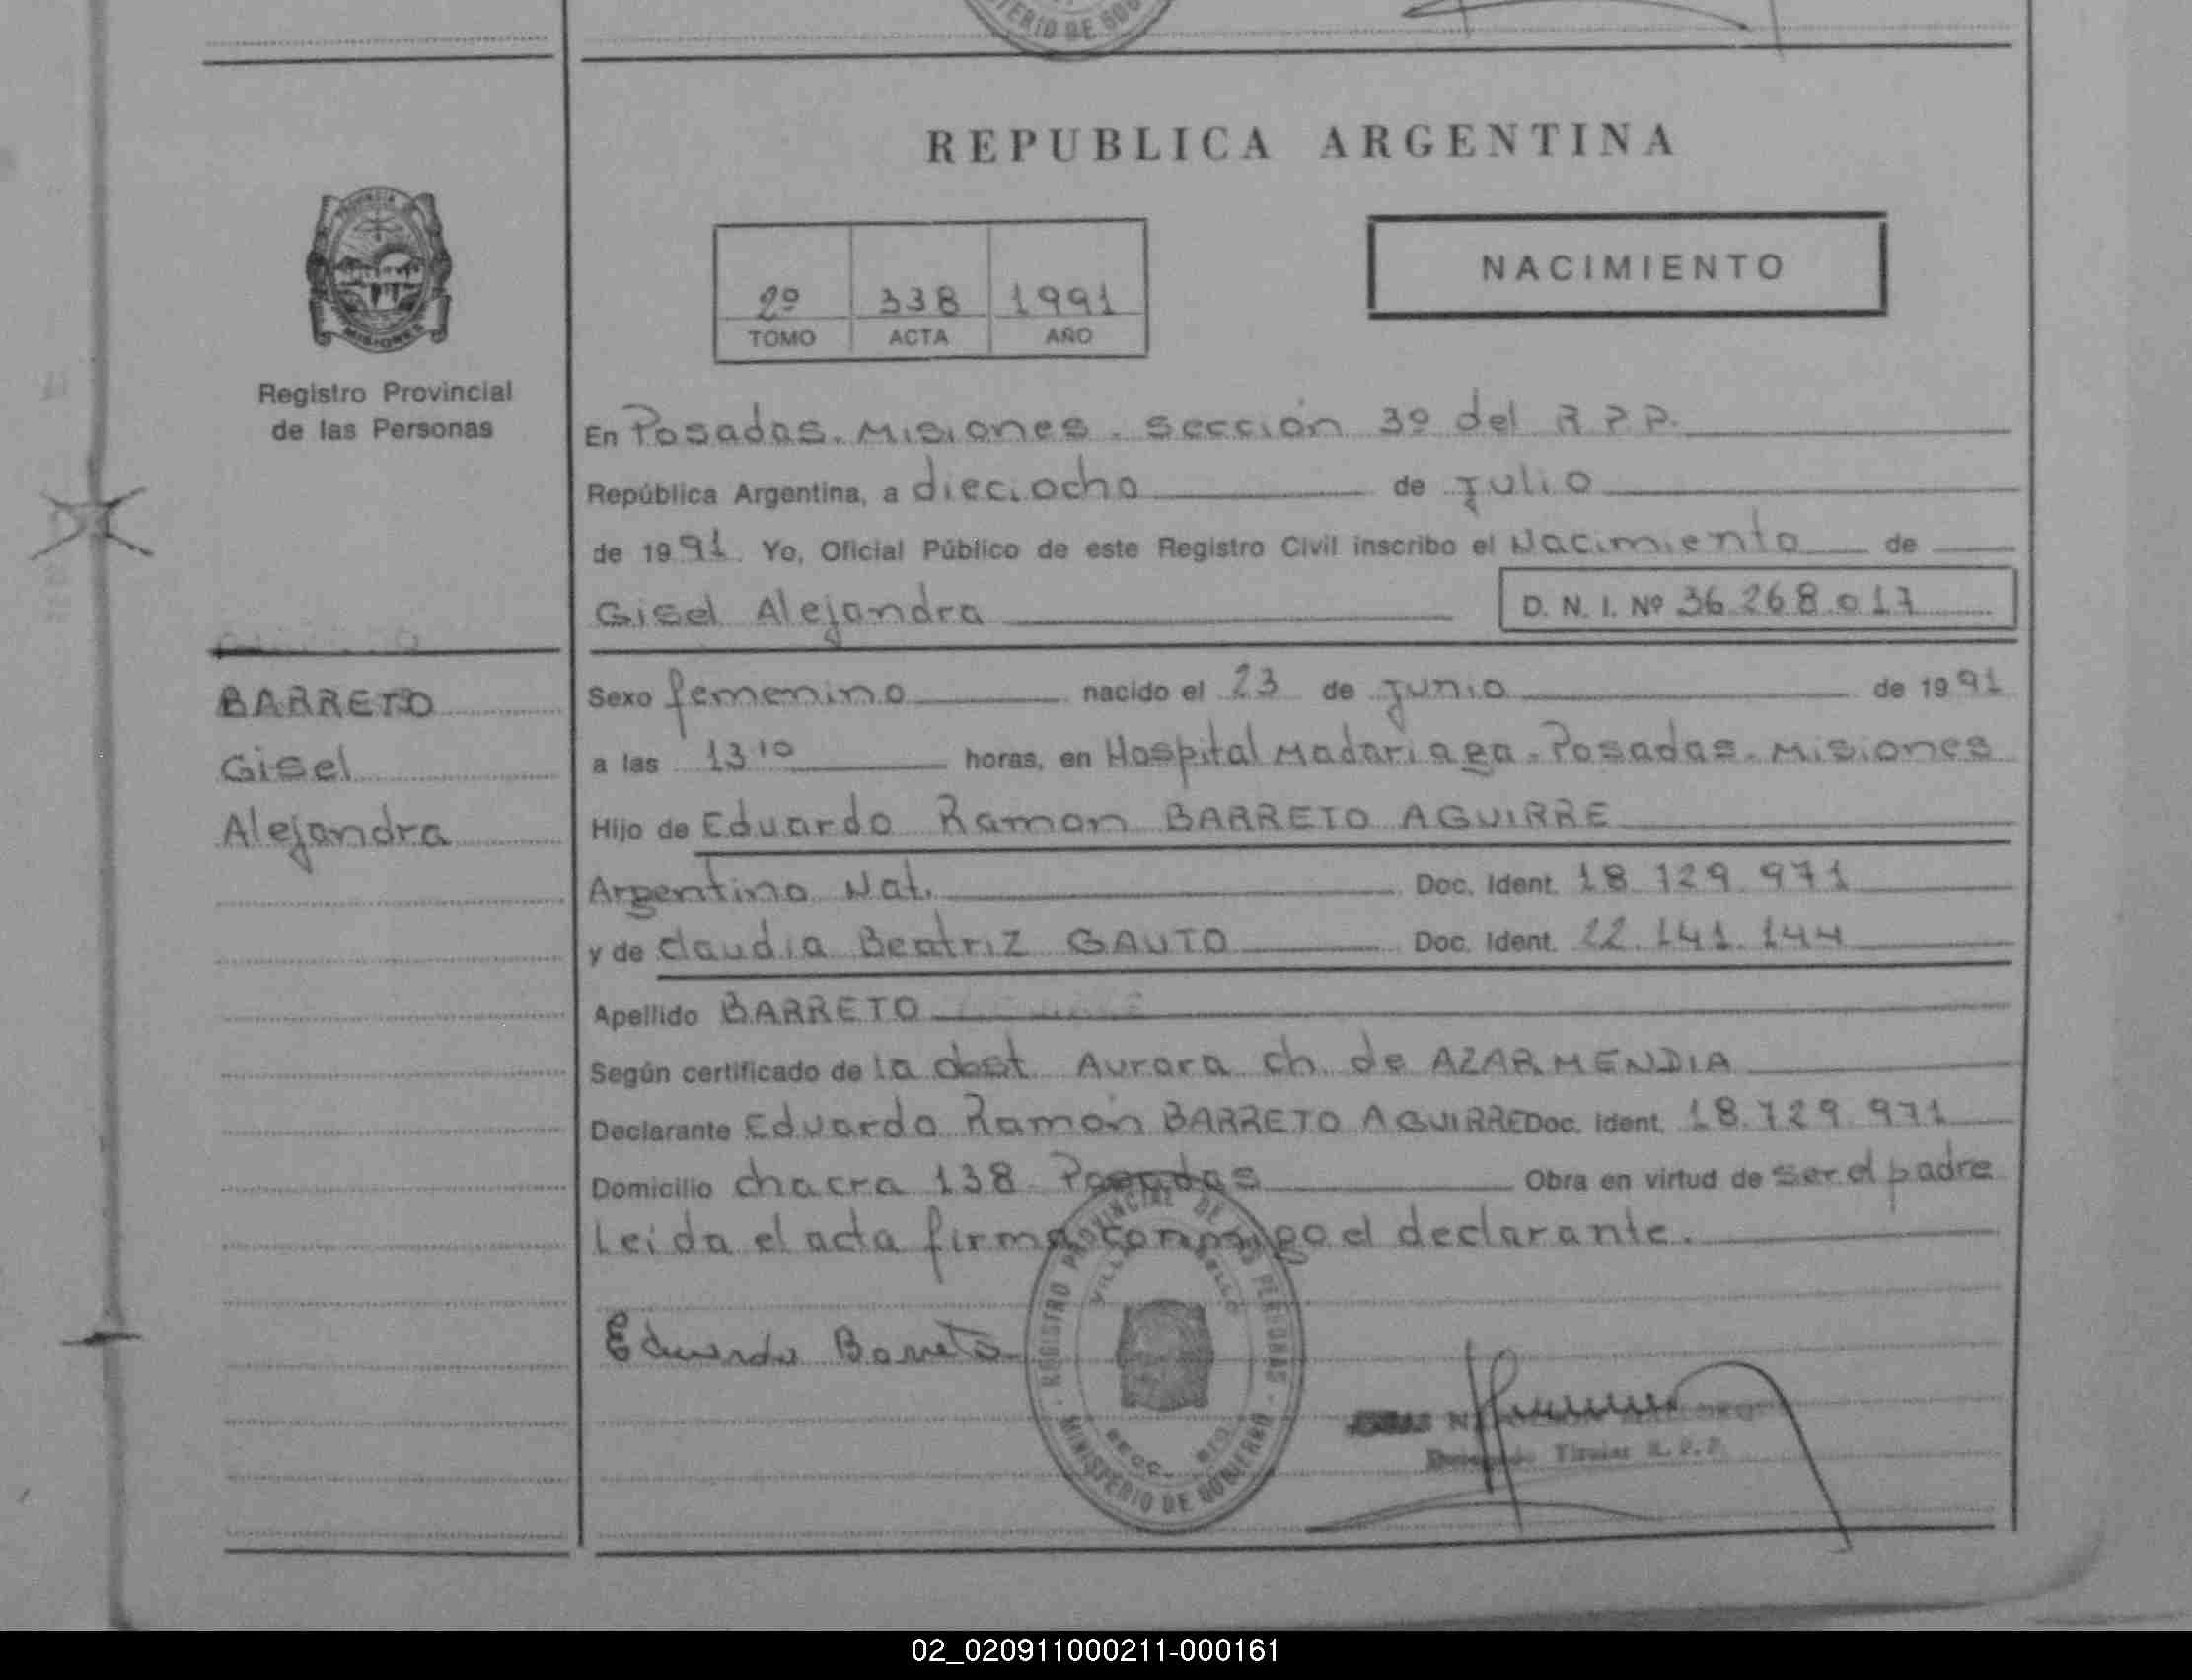 TERIO DE GOB
REPUBLICA ARGENTINA
PROVINCIA DE
MISIONES
Registro Provincial
de las Personas
2º 338 1991
TOMO ACTA AÑO
NACIMIENTO
En Posadas. Misiones. sección 3º del R.P.P.
República Argentina, a dieciocho de Julio
de 1991 Yo, Oficial Público de este Registro Civil inscribo el Nacimiento de
Gisel Alejandra D. N. I. Nº 36.268.017
BARRETO
Gisel
Alejandra
Sexo femenino nacido el 23 de Junio de 1991
a las 13¹⁰ horas, en Hospital Madariaga. Posadas. Misiones
Hijo de Eduardo Ramon BARRETO AGUIRRE
Argentino Nat. Doc. Ident. 18.729.971
y de Claudia Beatriz GAUTO Doc. Ident. 22.141.144
Apellido BARRETO
Según certificado de la obst. Aurora Ch. de AZARMENDIA
Declarante Eduardo Ramón BARRETO AGUIRRE Doc. Ident. 18.729.971
Domicilio chacra 138 Posadas Obra en virtud de ser el padre
Leida el acta firma conmigo el declarante.
Eduardo Barreto
REGISTRO PROVINCIAL DE LAS PERSONAS
MINISTERIO DE GOBIERNO
Titular R.P.P.
02_020911000211-000161